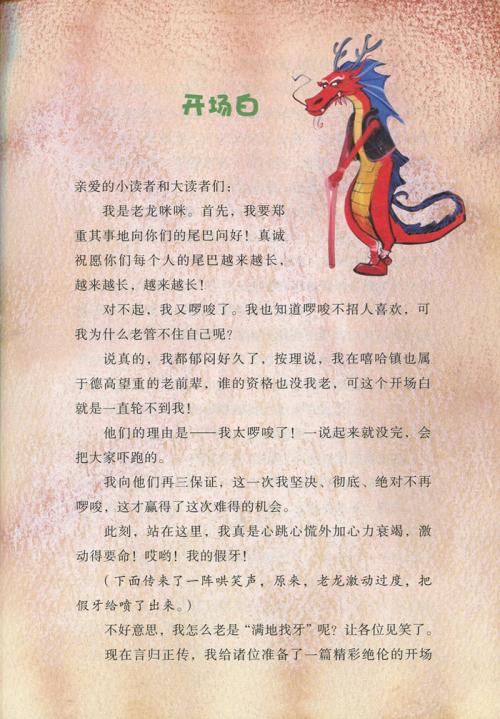 开场白
亲爱的小读者和大读者们：
我是老龙咪咪。首先，我要郑
重其事地向你们的尾巴问好！真诚
祝愿你们每个人的尾巴越来越长，
越来越长，越来越长！
对不起，我又啰唆了。我也知道啰唆不招人喜欢，可
我为什么老管不住自己呢？
说真的，我都郁闷好久了，按理说，我在嘻哈镇也属
于德高望重的老前辈，谁的资格也没我老，可这个开场白
就是一直轮不到我！
他们的理由是——我太啰唆了！一说起来就没完，会
把大家吓跑的。
我向他们再三保证，这一次我坚决、彻底、绝对不再
啰唆，这才赢得了这次难得的机会。
此刻，站在这里，我真是心跳心慌外加心力衰竭，激
动得要命！哎哟！我的假牙！
（下面传来了一阵哄笑声，原来，老龙激动过度，把
假牙给喷了出来。）
不好意思，我怎么老是“满地找牙”呢？让各位见笑了。
现在言归正传，我给诸位准备了一篇精彩绝伦的开场